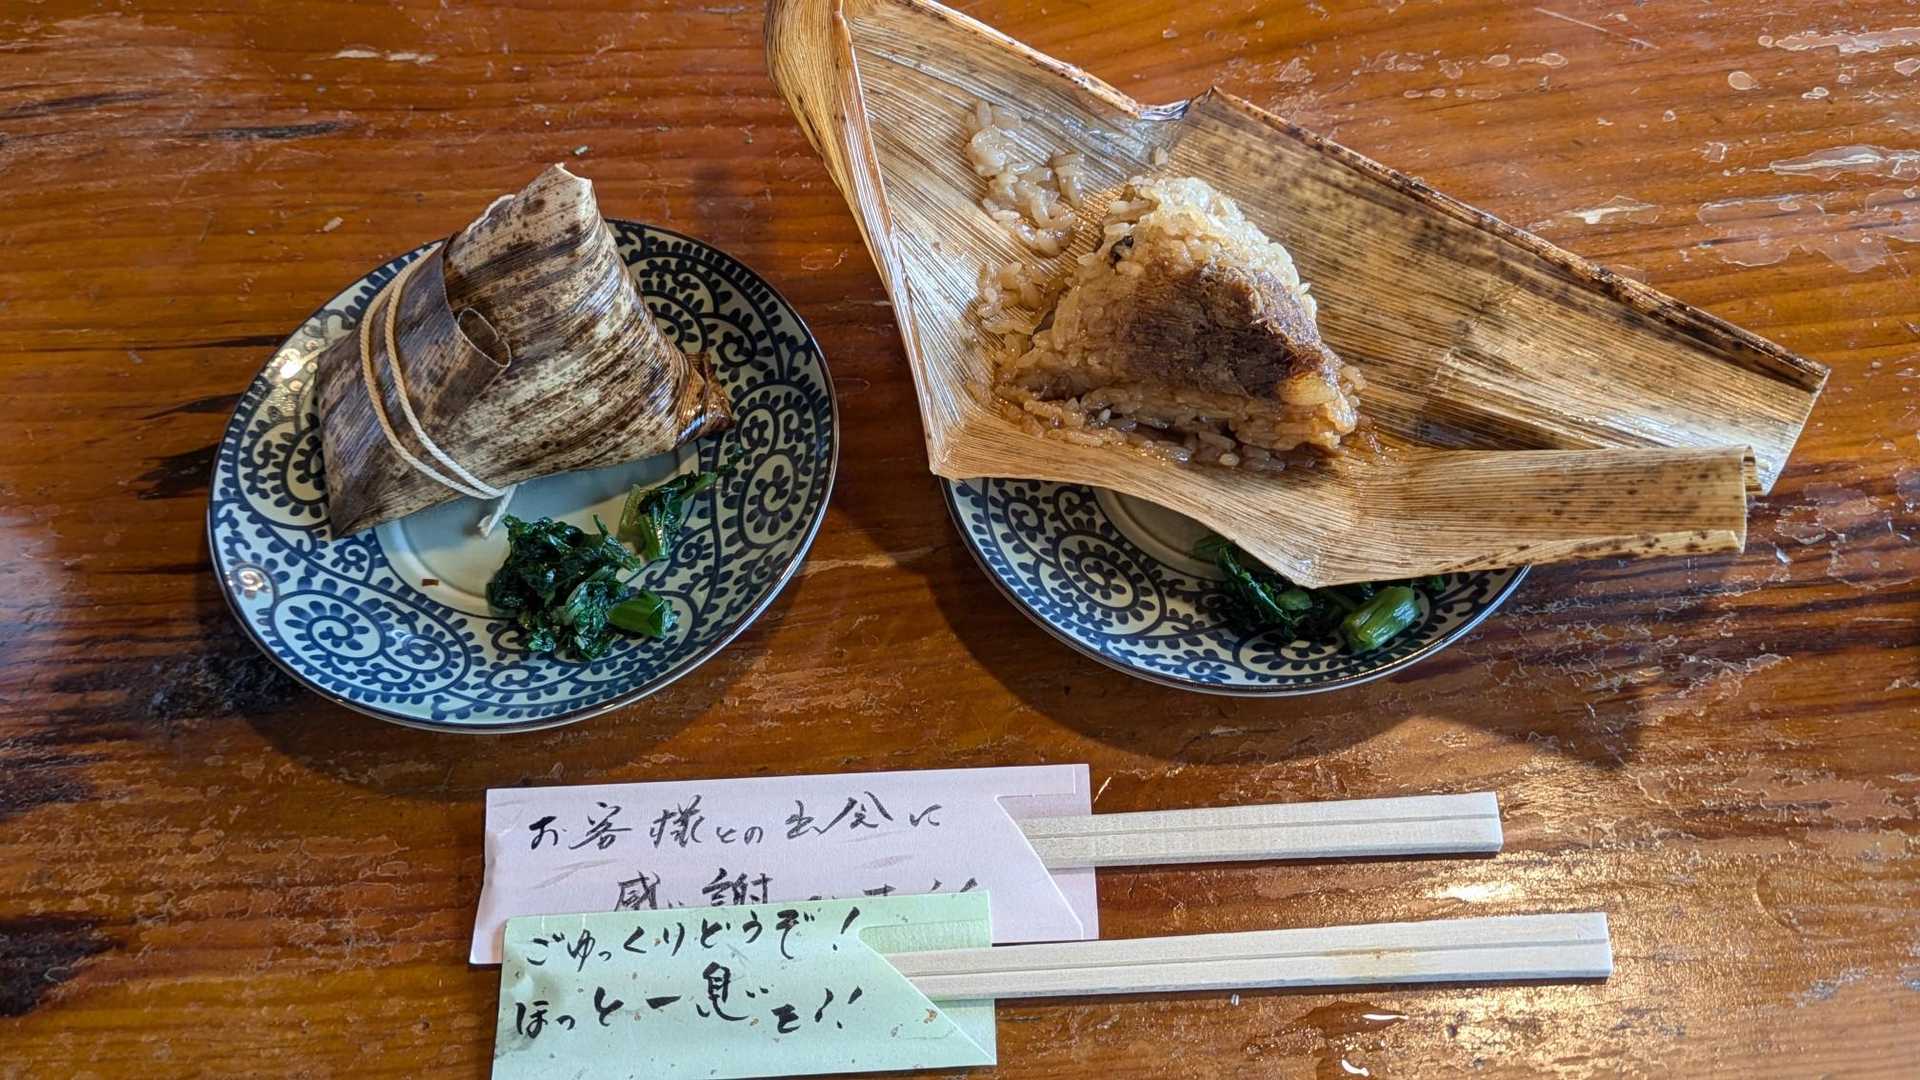 お客様との出会に
感謝
ごゆっくりどうぞ!
ほっと一息を!!